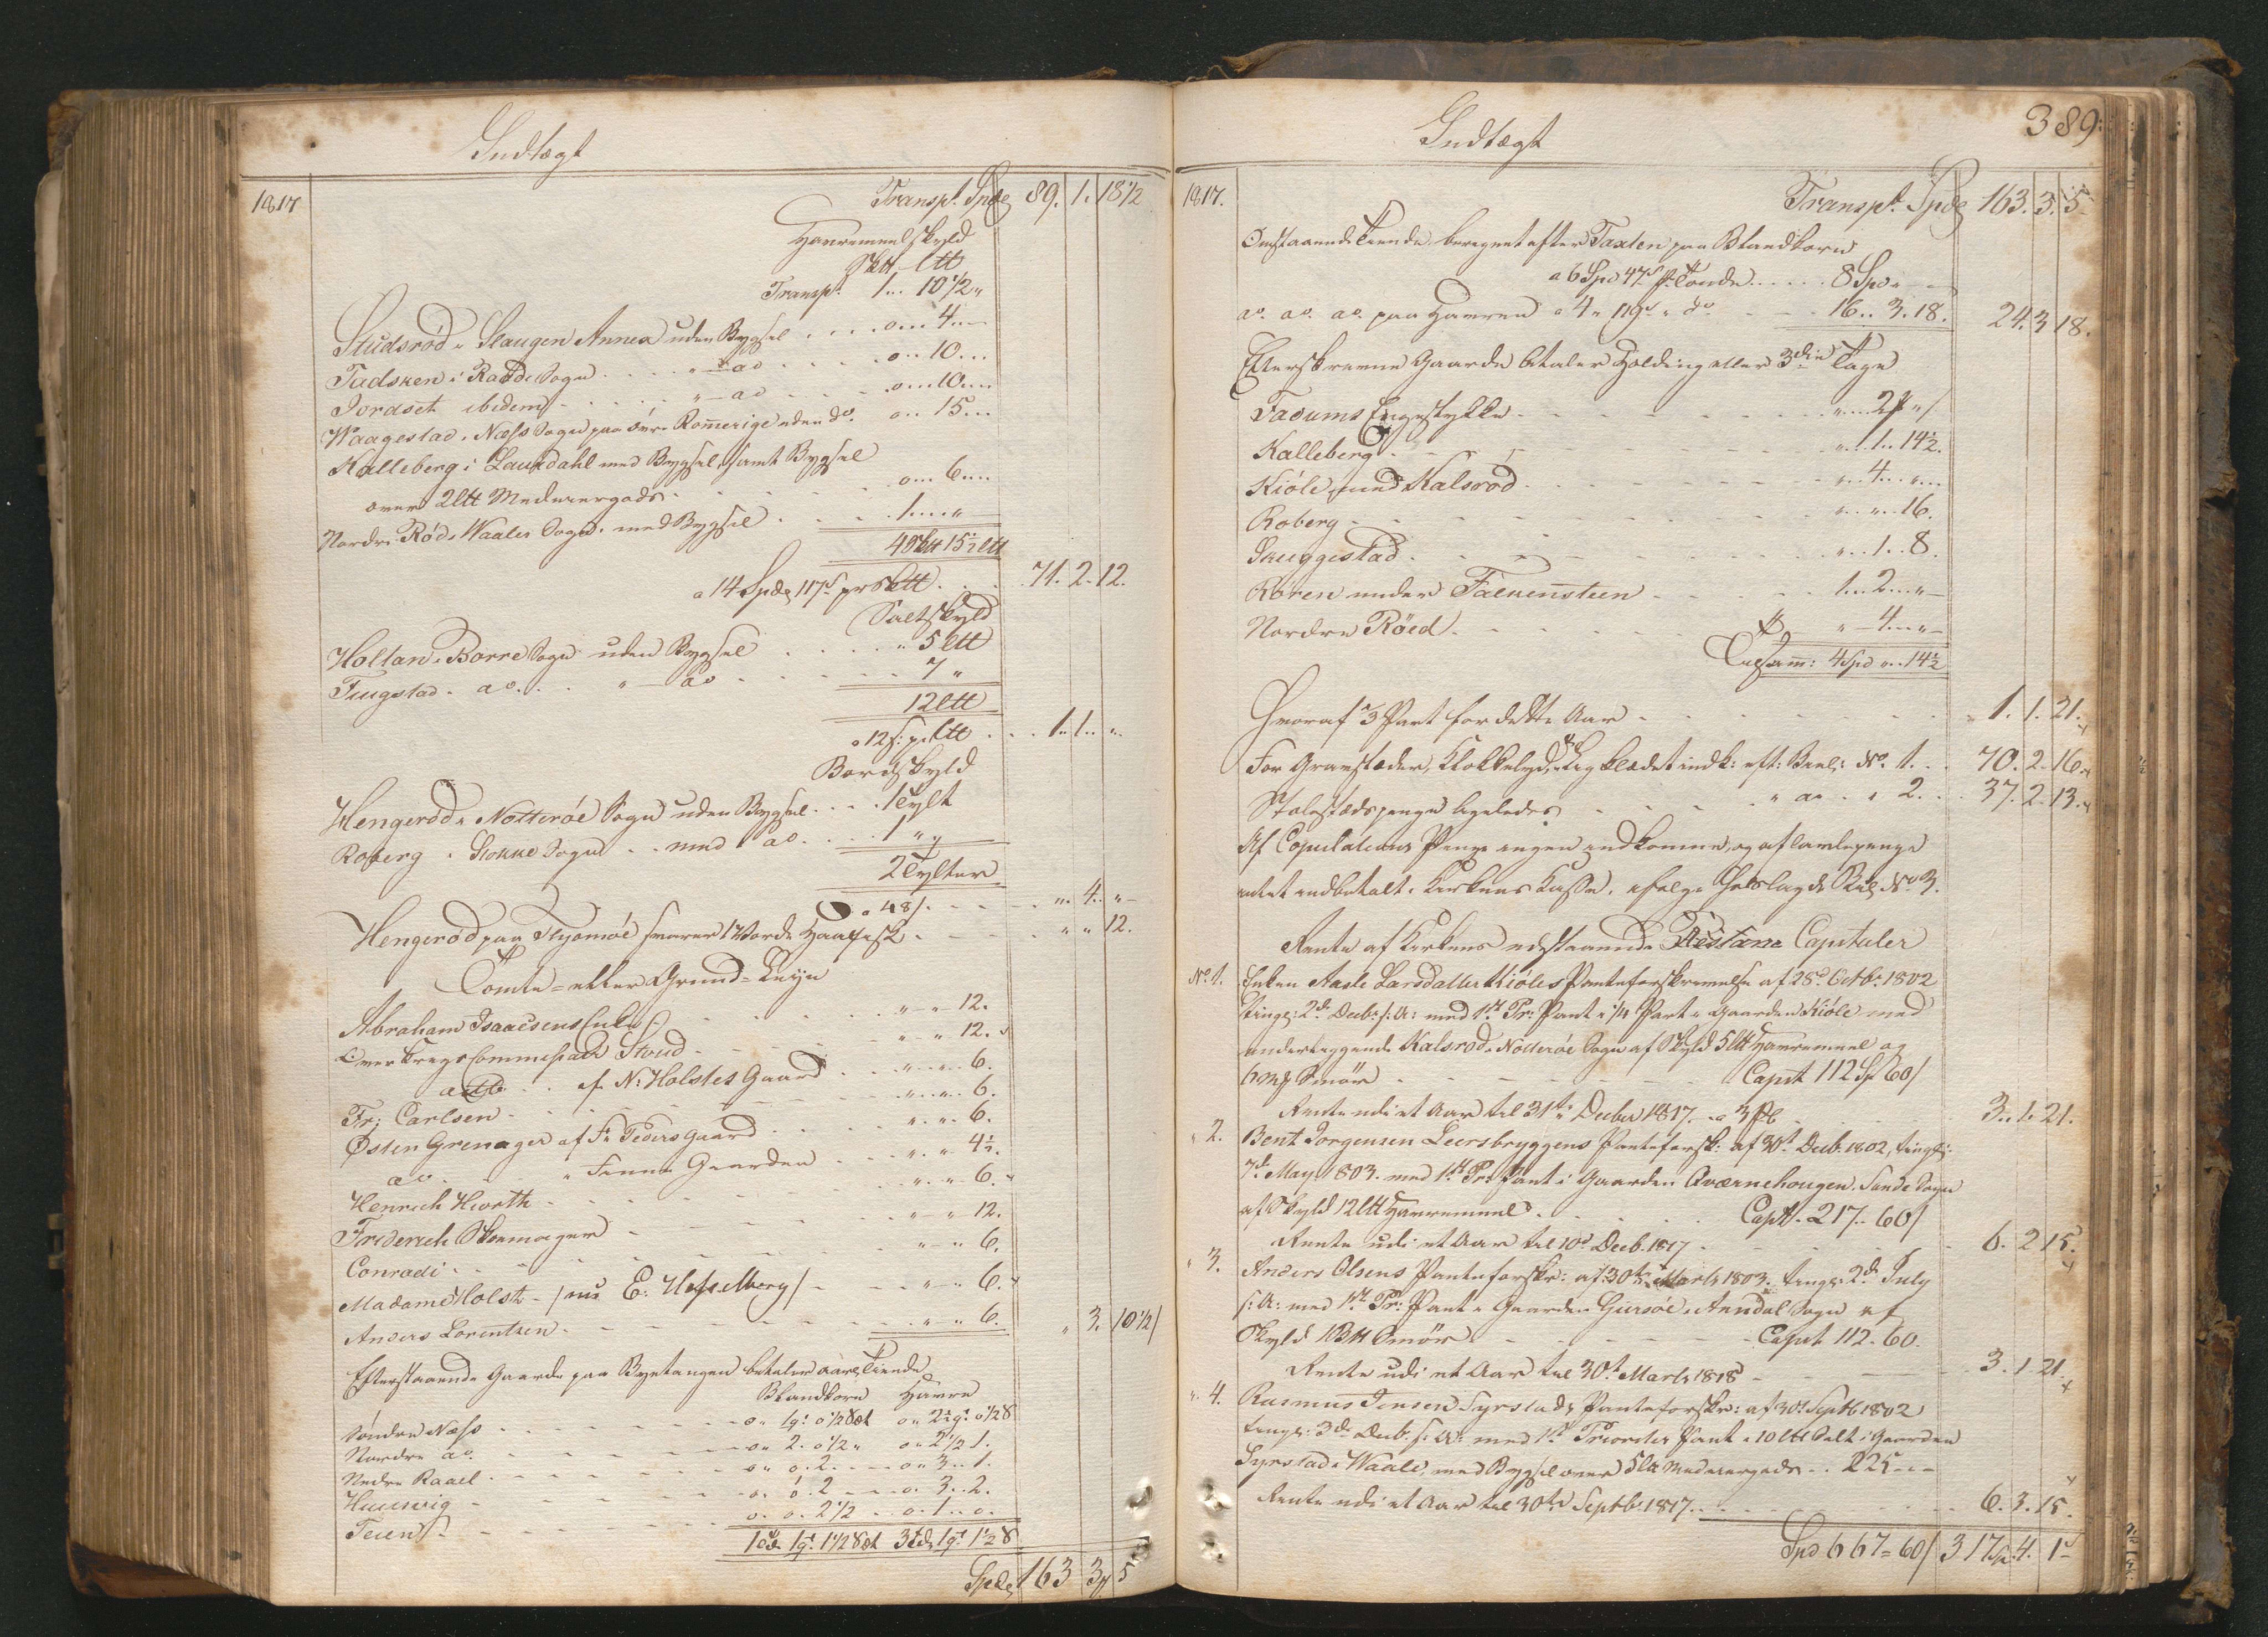 Indtægt
1817
Transpt. Spd. 89. 1. 18 1/2
Havremeelskyld
Skt ltt
Transpt. 1.. 10 1/2 "
Studsrød i Slaugen Annex uden Bygsel . . . o... 4...
Tadsken i Raade Sogn . . . . "—do . . . . o.. 10...
Jordset ibidem . . . . . "—do . . . o... 10...
Waagestad i Næss Sogn paa øvre Romerige uden do. o.. 15...
Kalleberg i Laurdahl med Bygsel, samt Bygsel
over 2 ltt Medeiergods . . . . . . o... 6...
Nordre Røed i Waaler Sogn med Bygsel . . . . 1.... "
4 Skt 15 1/2 ltt
a 14 Spd. 117 s pr Sktt . . . . 71. 2. 12.
Saltskyld
Holtan i Borre Sogn uden Bygsel . . . . " 5 ltt
Fingstad - do. . . "—do . . . . . 7 "
12 ltt
a 12 s. pr ltt . . . 1.. 1.. "
Bordskyld
Hengerød i Nøtterøe Sogn uden Bygsel . . . 1 Tylt
Roberg i Stokke Sogn . . med do. . . . 1 "
2 Tylter
a 48 s. - - - - ". 4.. "
Hengerød paa Tyømøe svarer 1 Vorde Haafisk . - - - . " " 12.
Tomte- eller Grund-Leye
Abraham Isaacsens Enke . - - - - . "—" 12.
Over Krigs Commissair Stoud - - - - . "—" 12.
ditto . . af N: Holstes Gaard . . "..".. 6.
Fr: Carlsen - - - - - ".—". 6.
Østen Grenager af Fr Peders Gaard . . . . "..". 6.
do. . . " Finne Gaarden . . . . ". ". 4 1/2.
Henrich Hiorth - - - - - - "..". 6.
Friderich Skomager - - - - - . "—" 12.
Conradi . - - - - - - . "—" 6.
Madame Holst - / nu E: Hesselberg / - - - "—" 6.
Anders Lorentzen . - - - - - - . "—" 6. " 3. 10 1/2
Efterstaaende Gaarde paa Byetangen betaler aarl. Tiende
Blandkorn Havre
Søndre Næss . . . . .
Nordre do.
Nedre Raael
Teien
Spd. 163 3 5
Indtægt
389.
1817.
Transpt. Spd. 163. 3. 5.
Omstaaende Tiende beregnet efter Taxten paa Blandkorn
a 6 Spd 47 s pr Tønde . . . . . 8 Spd "
do. do. do. paa Havren a 4 " 119 s " do — — - 16.. 3. 18. 24. 3 18.
Efterskrevne Gaarde betaler Holding eller 3die Tage
Fadums Engestykke . - - - - - "... 2 "
Kalleberg . - - - - - - ". 1.. 14 1/2.
Kiøle med Kalsrød . - - - - - ".. 4... "...
Roberg - - - - - - - ".. ".. 16.
Skuggestad . - - - - - - ". 1.. 8.
Røren under Falkensteen - - - - - 1... 2... "
Nordre Røed . - - - - "—4... "
Tilsamm: 4 Spd ". 14 1/2
Hvoraf 1/3 Part for dette Aar . - - - - - - " 1. 1. 21.
For Gravsteder, Klokkelyd, og Lig klædet indk: eft: Beel: No. 1. . . 70. 2. 16.
Stolestadspenge ligeledes . . . . " do " 2. . . 37. 2. 13.
Af Copulations Penge ingen indkomne, og af
intet indbetalt i Kirkens Kasse, ifølge Bil. No 3.
Rente af Kirkens udestaaende Bestaaende Capitaler
No. 1. Enken Aaste Larsdatter Kiøles Panteforskrivelse af 28d Octbr. 1802
tingl: 2d Decbr. s: A: med 1ste Pr: Pant i 1/4 Part i Gaarden Kiøle med
underliggende Kalsrød i Nøtterøe Sogn af Skyld 5 ltt Havremeel og
6 mk Smør - - - - - - - Capit 112 Sp 60 s
Rente udi et Aar til 31te Decbr 1817. a 3 pC . . . . 3. 1. 21.
" 2. Bent Jorgensen Leersbryggens Panteforsk: af 30t Decb. 1802, tingl:
7d May 1803. med 1st Pr: Pant i Gaarden Qværnehougen i Sande Sogn
af Skyld 12 ltt Havremeel . . . . Capt. 217.. 60 s
Rente udi et Aar til 10d Decb. 1817 - - - - - 6. 2 15.
" 3. Anders Olsens Panteforskr: af 30t Marts 1803. tingl: 2d July
s: A: med 1st Pr: Pant i Gaarden Gursøe i Anndal Sogn af
Skyld 1 Btt Smør . - - - - - - Capit 112 - 60.
Rente udi et Aar til 30te Marts 1818 - - - - - 3. 1 21.
" 4. Rasmus Jensen Syrstads Panteforskr: af 30t Septb 1802
tingl: 3de Decb. s: A: med 1st Priorites Pant i 10 ltt Salt i Gaarden
Syrstad i Waale, med Bygsel over 5 ltt Medeiergods . . 225 - - -
Rente udi et Aar til 30te Septb. 1817 . - - - - - 6. 3. 18.
Spd 667 = 60 s 317 Sp. 4. 1